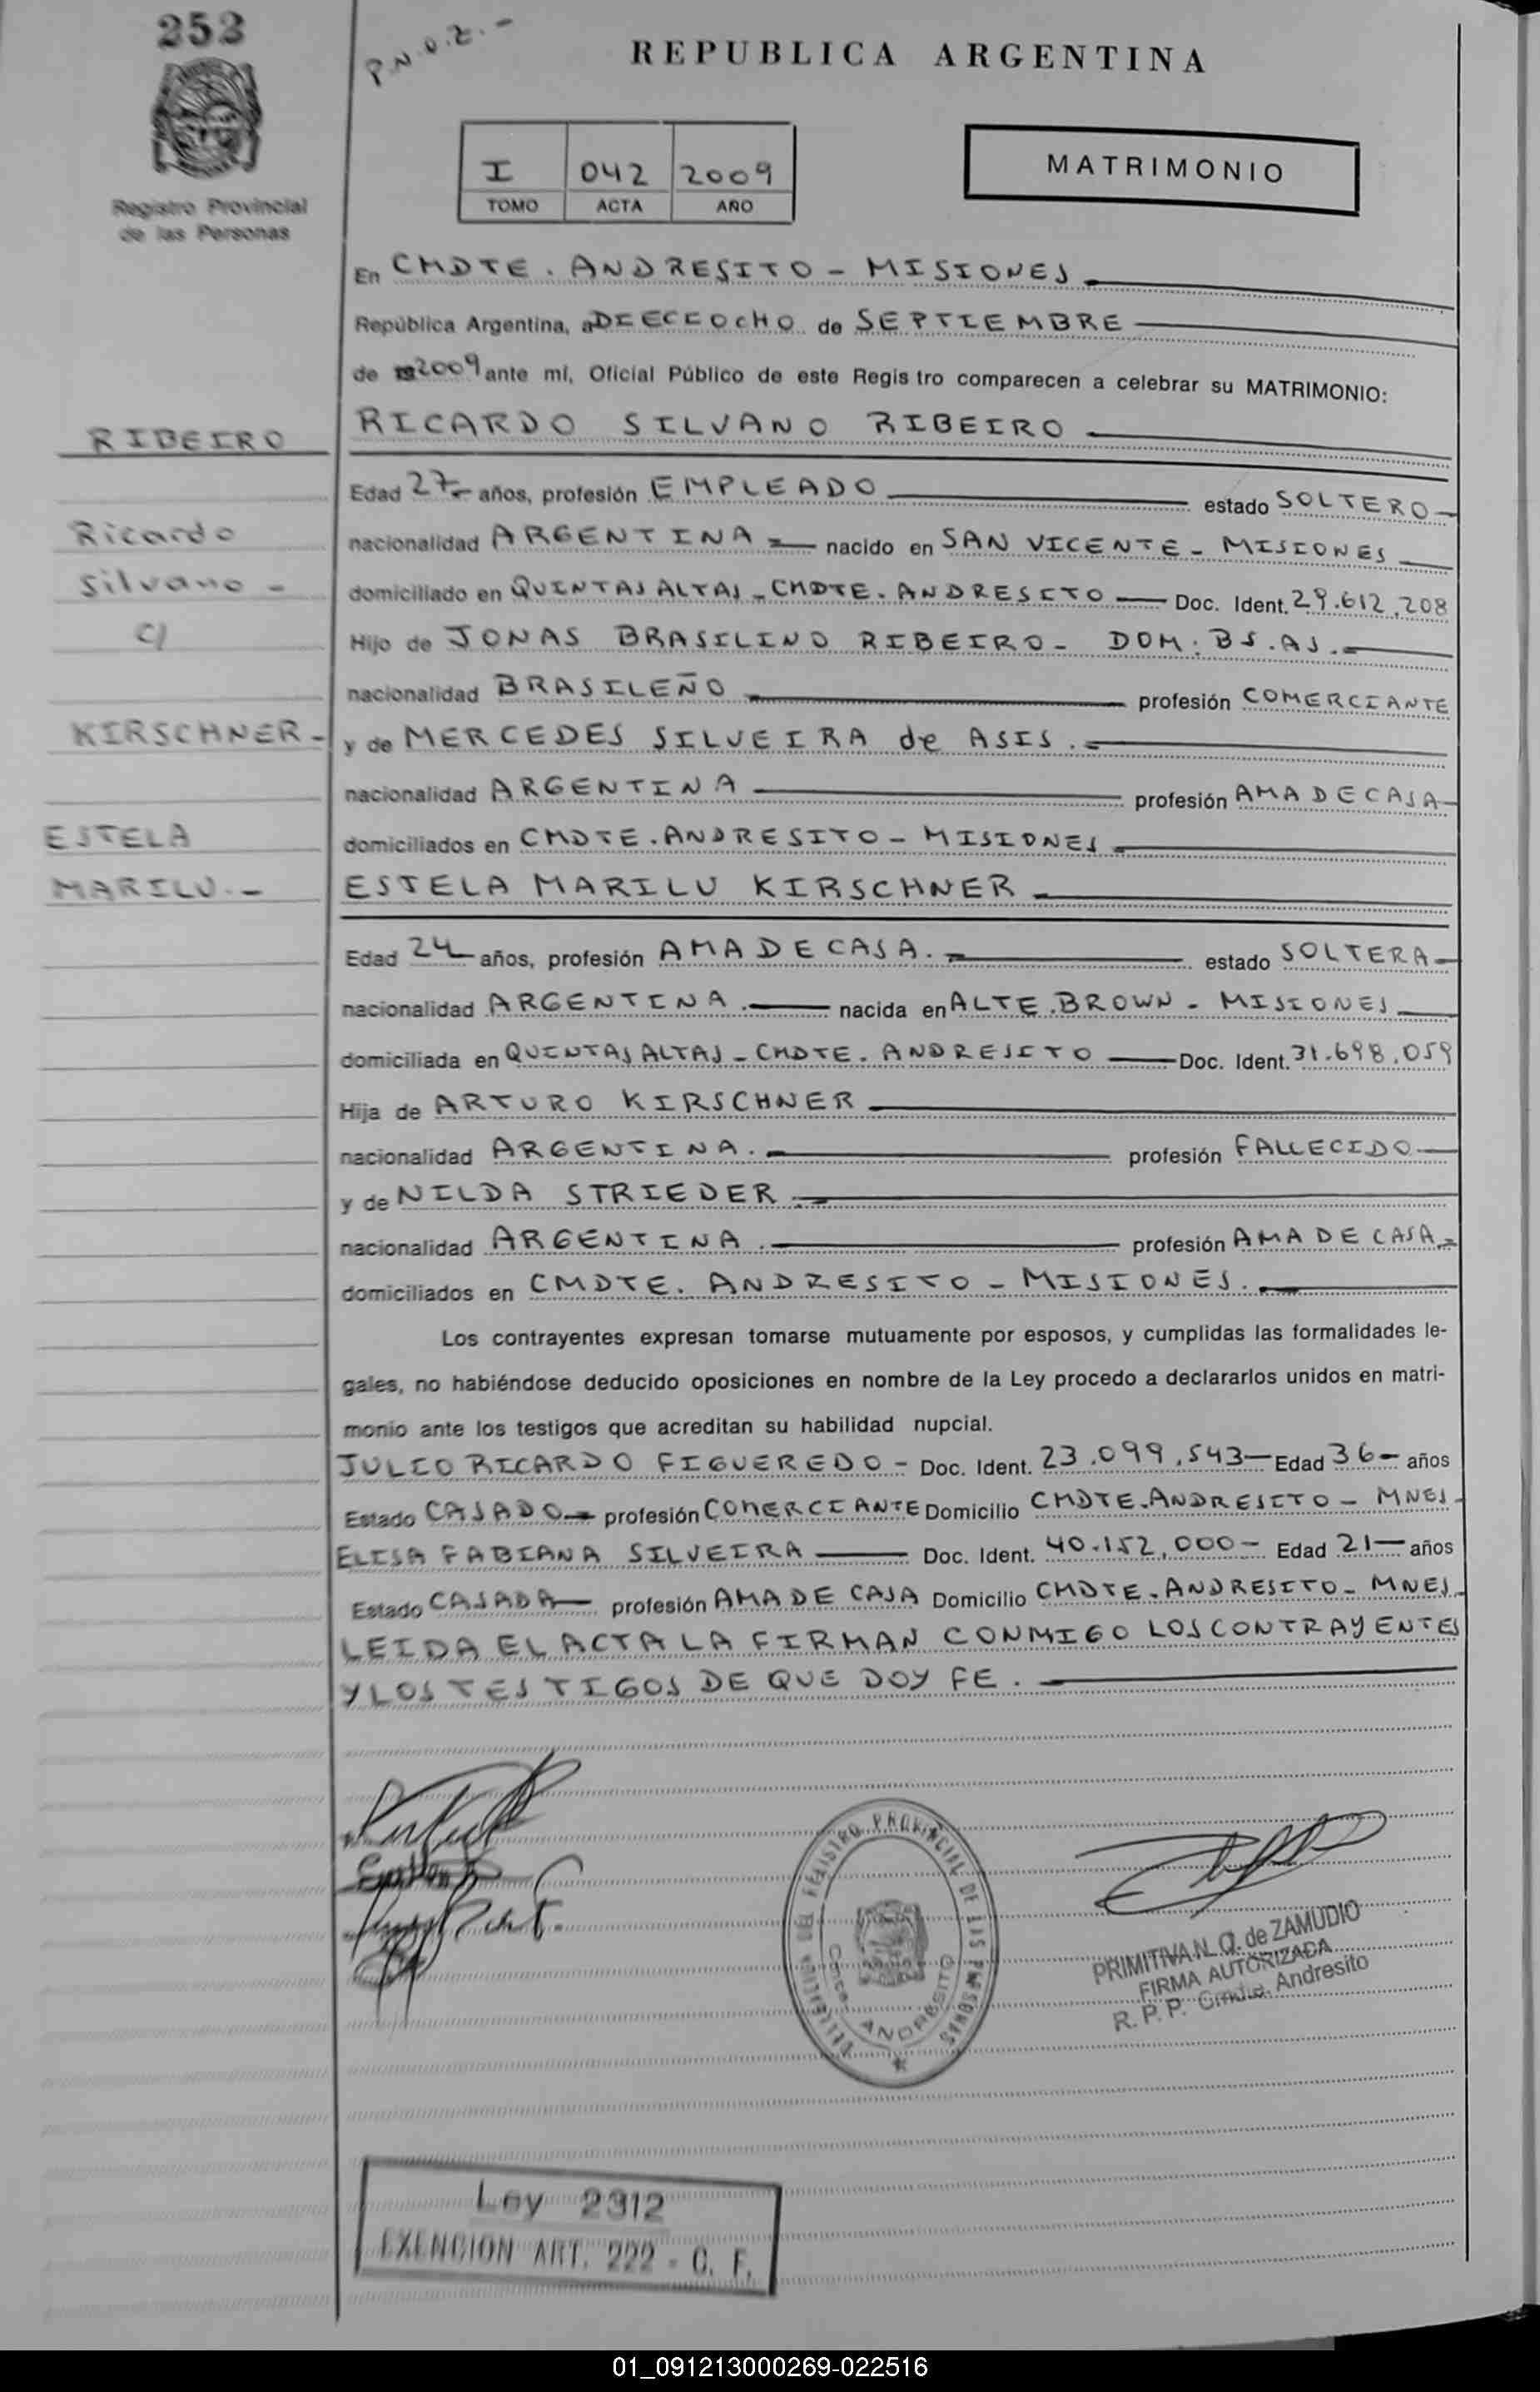 253
P.N.O.Z.-
REPUBLICA ARGENTINA
Registro Provincial
de las Personas
I 042 2009
TOMO ACTA AÑO
MATRIMONIO
En CMDTE. ANDRESITO - MISIONES
República Argentina, a DIECIOCHO de SEPTIEMBRE
de 2009 ante mí, Oficial Público de este Regis tro comparecen a celebrar su MATRIMONIO:
RIBEIRO
Ricardo
Silvano -
C/
KIRSCHNER -
ESTELA
MARILU. -
RICARDO SILVANO RIBEIRO
Edad 27 años, profesión EMPLEADO estado SOLTERO
nacionalidad ARGENTINA nacido en SAN VICENTE - MISIONES
domiciliado en QUINTAS ALTAS - CMDTE. ANDRESITO Doc. Ident. 29.612.208
Hijo de JONAS BRASILINO RIBEIRO - DOM: BS.AS.
nacionalidad BRASILEÑO profesión COMERCIANTE
y de MERCEDES SILVEIRA de ASIS.
nacionalidad ARGENTINA profesión AMA DE CASA
domiciliados en CMDTE. ANDRESITO - MISIONES
ESTELA MARILU KIRSCHNER
Edad 24 años, profesión AMA DE CASA. estado SOLTERA
nacionalidad ARGENTINA. nacida en ALTE. BROWN - MISIONES
domiciliada en QUINTAS ALTAS - CMDTE. ANDRESITO Doc. Ident. 31.698.059
Hija de ARTURO KIRSCHNER
nacionalidad ARGENTINA. profesión FALLECIDO
y de NILDA STRIEDER
nacionalidad ARGENTINA. profesión AMA DE CASA
domiciliados en CMDTE. ANDRESITO - MISIONES.
Los contrayentes expresan tomarse mutuamente por esposos, y cumplidas las formalidades le-
gales, no habiéndose deducido oposiciones en nombre de la Ley procedo a declararlos unidos en matri-
monio ante los testigos que acreditan su habilidad nupcial.
JULIO RICARDO FIGUEREDO - Doc. Ident. 23.099.543 Edad 36 años
Estado CASADO profesión COMERCIANTE Domicilio CMDTE. ANDRESITO - MNES.
ELISA FABIANA SILVEIRA Doc. Ident. 40.152.000 - Edad 21 años
Estado CASADA profesión AMA DE CASA Domicilio CMDTE. ANDRESITO - MNES.
LEIDA EL ACTA LA FIRMAN CONMIGO LOS CONTRAYENTES
Y LOS TESTIGOS DE QUE DOY FE.
REGISTRO PROVINCIAL DE LAS PERSONAS
ANDRESITO
PRIMITIVA N. O. de ZAMUDIO
FIRMA AUTORIZADA
R. P. P. Cmdte. Andresito
Ley 2312
EXENCION ART. 222 - C. F.
01_091213000269-022516